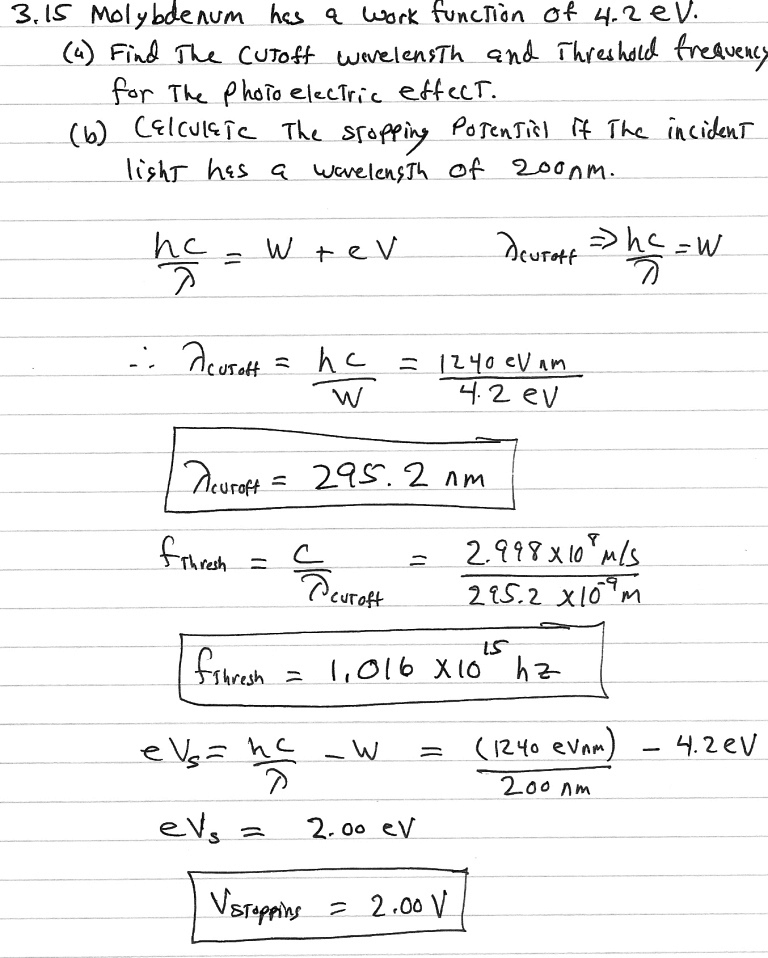 3.15 Molybdenum has a work function of 4.2 eV.
(a) Find The cutoff wavelength and Threshold frequency
for The photoelectric effect.
(b) Calculate The stopping Potential if The incident
light has a wavelength of 200nm.
hc/λ = W + eV    λcutoff ⇒ hc/λ = W
∴ λcutoff = hc/W = 1240 eV nm/4.2 eV
λcutoff = 295.2 nm
fThresh = c/λcutoff = 2.998 x10⁸ m/s/295.2 x10⁻⁹ m
fThresh = 1.016 x10¹⁵ hz
eVs = hc/λ - W = (1240 eVnm)/200 nm - 4.2 eV
eVs = 2.00 eV
Vstopping = 2.00 V